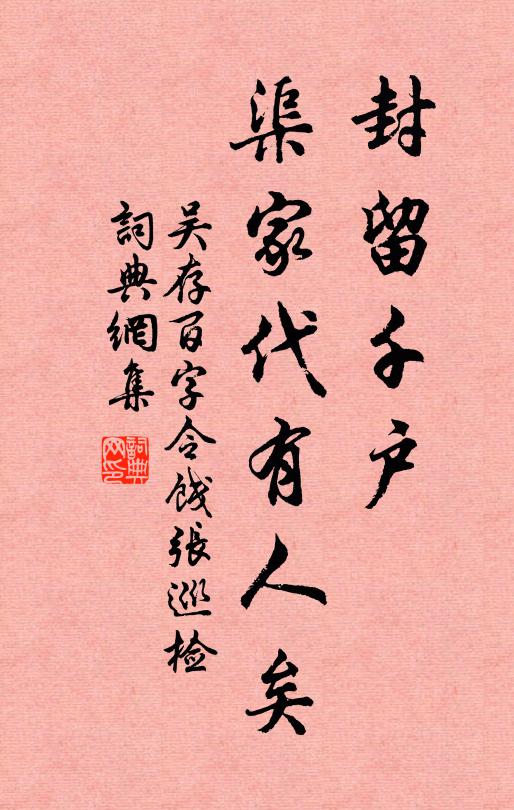 封留千户
渠家代有人矣
吴存百字令饯張巡检
詞典網集
詞典网印